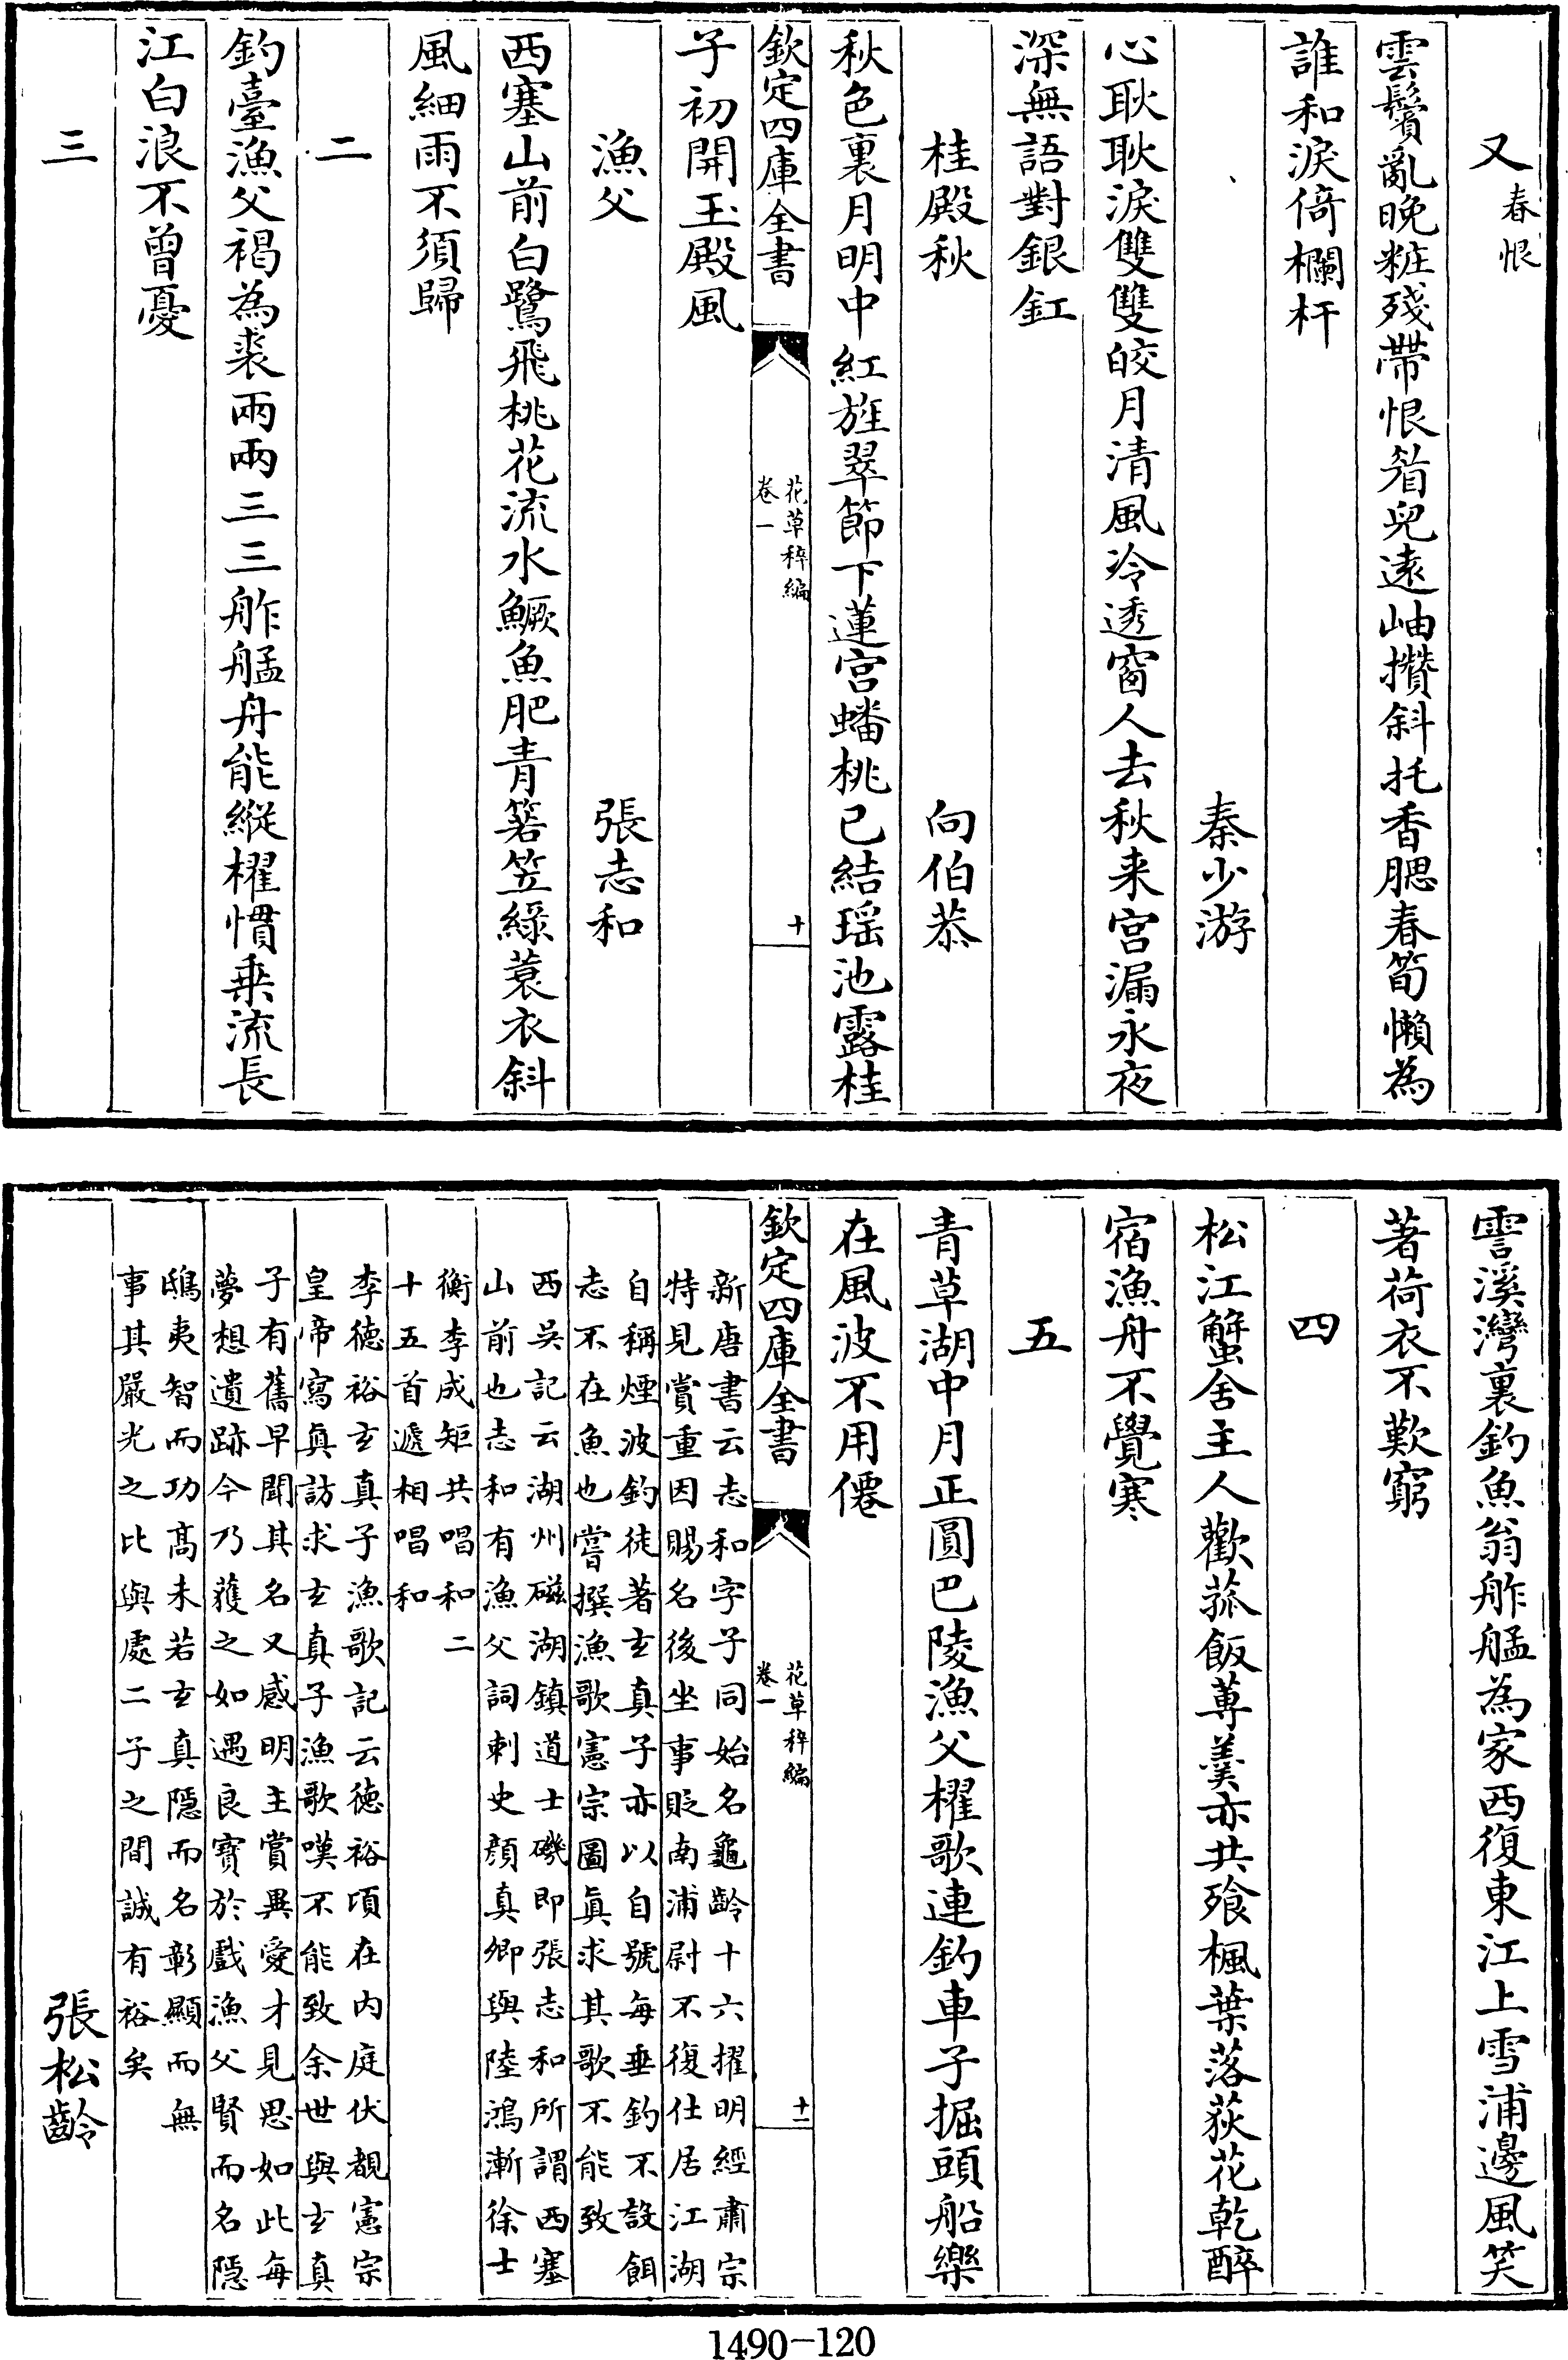 又春恨
雲鬢亂晚粧殘帶恨眉兒遠岫攢斜托香腮春筍懶為
誰和淚倚欄杆
秦少游
心耿耿淚雙雙皎月清風冷透窗人去秋来宫漏永夜
深無語對銀釭
桂殿秋 向伯恭
秋色裏月明中紅旌翠節下蓬宫蟠桃已結瑶池露桂
欽定四庫全書 花草稡編卷一 十
子初開玉殿風
漁父 張志和
西塞山前白鷺飛桃花流水鱖魚肥青箬笠綠蓑衣斜
風細雨不須歸
二
釣臺漁父褐為裘兩兩三三舴艋舟能縱櫂慣乗流長
江白浪不曾憂
三
霅溪灣裏釣魚翁舴艋為家西復東江上雪浦邊風笑
著荷衣不歎窮
四
松江蟹舍主人歡菰飯蓴羹亦共飱楓葉落荻花乾醉
宿漁舟不覺寒
五
青草湖中月正圓巴陵漁父櫂歌連釣車子掘頭船樂
在風波不用僊
欽定四庫全書 花草稡編卷一 十一
新唐書云志和字子同始名龜齡十六擢明經肅宗
特見賞重因賜名後坐事貶南浦尉不復仕居江湖
自稱煙波釣徒著玄真子亦以自號每垂釣不設餌
志不在魚也嘗撰漁歌憲宗圖真求其歌不能致
西吳記云湖州磁湖鎮道士磯即張志和所謂西塞
山前也志和有漁父詞刺史顏真卿與陸鴻漸徐士
衡李成矩共唱和二
十五首遞相唱和
李德裕玄真子漁歌記云德裕頃在内庭伏覩憲宗
皇帝寫真訪求玄真子漁歌嘆不能致余世與玄真
子有舊早聞其名又感明主賞異愛才見思如此每
夢想遺跡今乃獲之如遇良寶於戲漁父賢而名隱
鴟夷智而功髙未若玄真隱而名彰顯而無
事其嚴光之比與處二子之間誠有裕矣
張松齡
1490-120